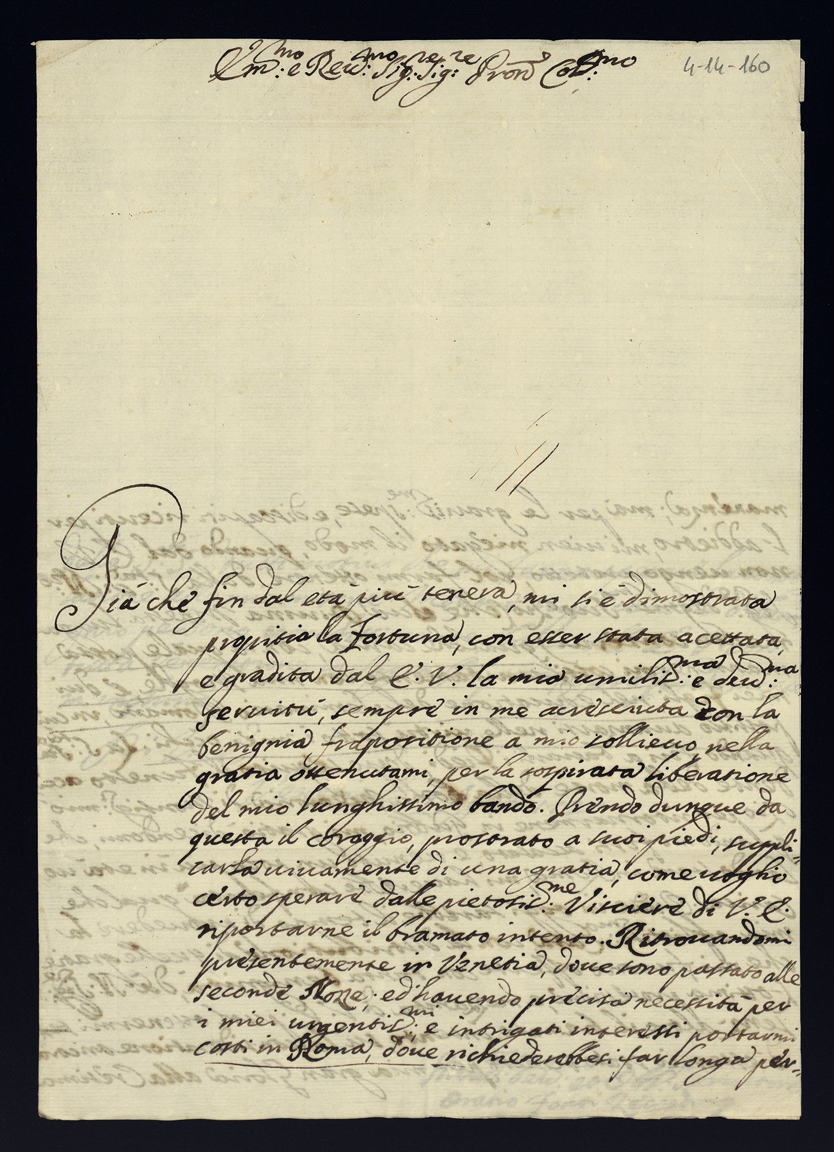 Em.mo e Reu.mo Sig.re Sig.re Pron Col.mo
4-14-160
Già che fin dal età più tenera, mi si è dimostrata
propitia la Fortuna, con esser stata acettata,
e gradita dal E. V. la mia umilis.ma e deu.ma
seruitù, sempre in me acresciuta con la
benignia frapositione a mio sollieuo nella
gratia ottenutami, per la sospirata liberatione
del mio lunghissimo bando. Prendo dunque da
questa il coraggio, prostrato a suoi piedi, suppli-
carla uiuamente di una gratia, come uoglio
certo sperare dalle pietosis.me Visciere di V.a E.
riportarne il bramato intento. Ritrouandomi
presentemente in Venetia, doue sono passato alle
seconde Nozze, ed hauendo precisa necessità per
i miei urgentis.mi e intrigati interessi portarmi
costì in Roma, doue richiederebbesi far longa per-